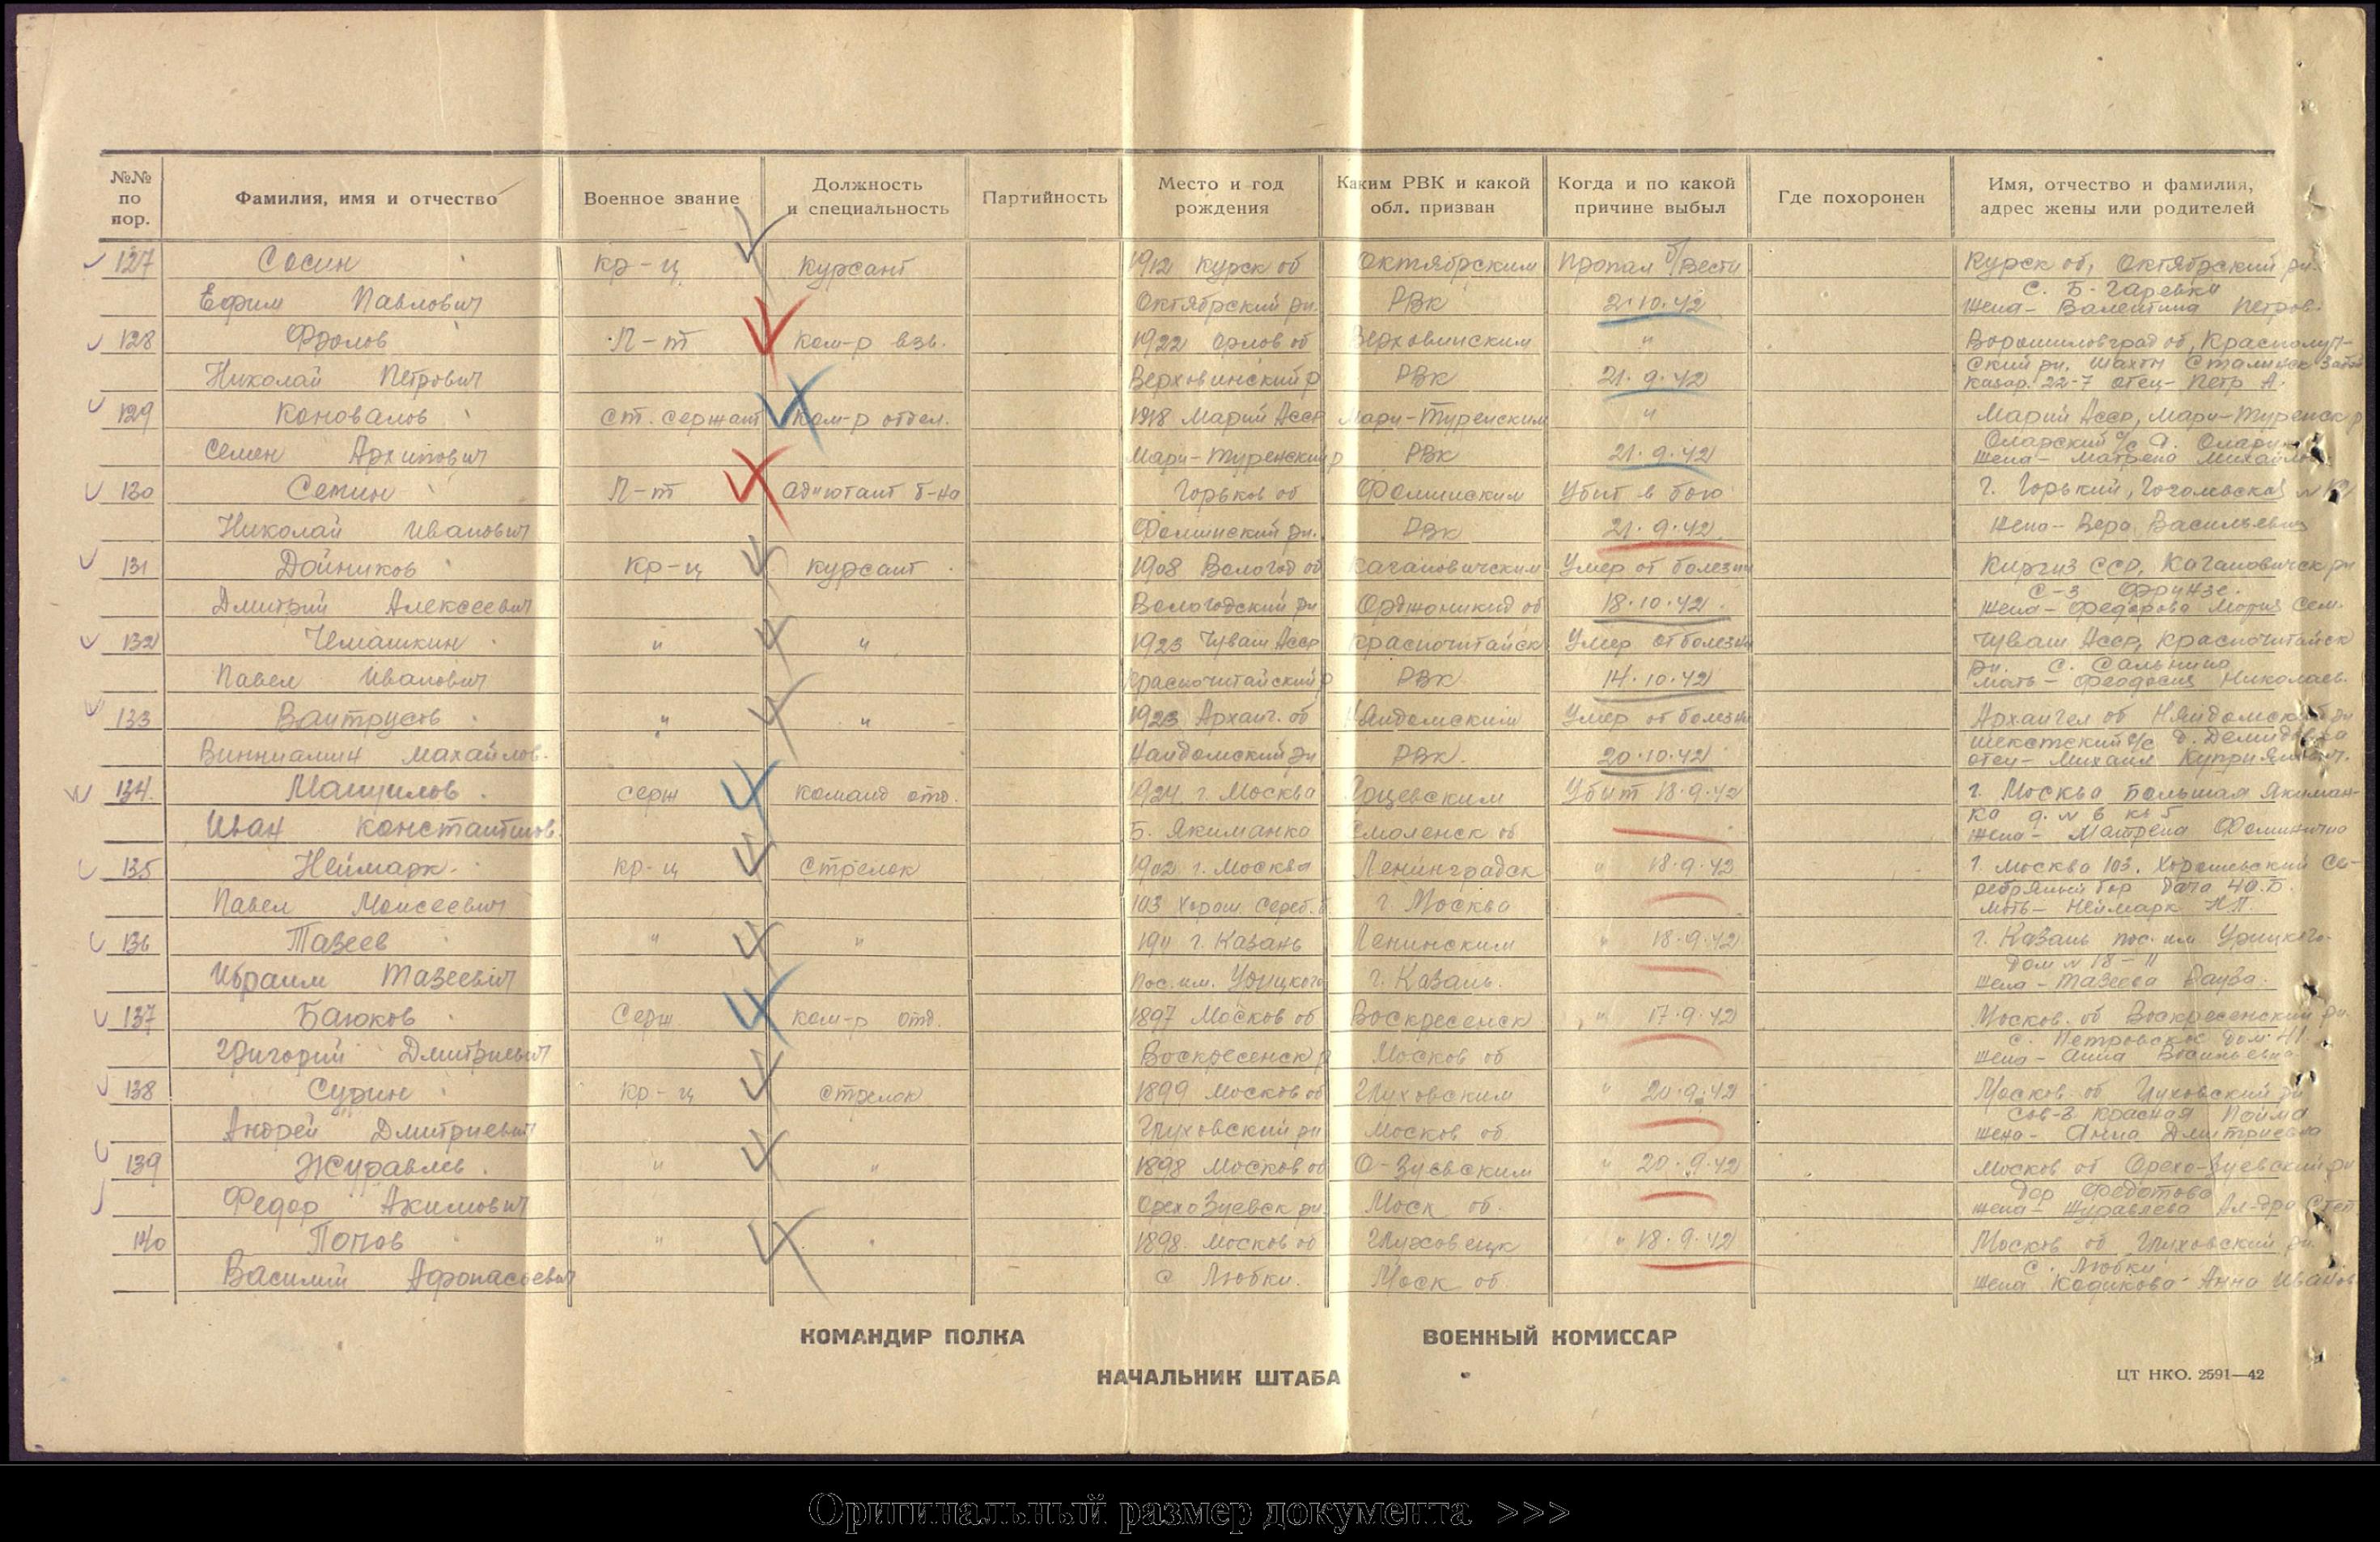 №№ по пор. Фамилия, имя и отчество Военное звание Должность и специальность Партийность Место и год рождения Каким РВК и какой обл. призван Когда и по какой причине выбыл Где похоронен Имя, отчество и фамилия, адрес жены или родителей
127 Сосин кр-ц курсант 1912 Курск об Октябрьским Пропал б/вести Курск об, Октябрьский рн.
Ефим Павлович Октябрьский рн. РВК 2.10.42 жена - Валентина Петров.
128 Фролов Л-т ком-р взв. 1922 Орлов об Верховинским " Ворошиловград об, Краснолуч-
Николай Петрович Верховинский р РВК 21.9.42 казар. 22-7 отец - Петр А.
129 Коновалов ст. сержант ком-р отдел. 1918 Марий Асср Мари-Турекским " Марий Асср, Мари-Турекск р
Семен Архипович Мари-Турекский р РВК 21.9.42 жена - Матрена
130 Семин Л-т адъютант б-на Горьков об Фоминским Убит в бою г. Горький,
Николай Иванович Фоминский рн. РВК 21.9.42 жена - Вера Васильевна
131 Дойников кр-ц курсант 1908 Вологод об Кагановичским Умер от болезни Киргиз ССР, Кагановичск рн
с-з Фрунзе.
Дмитрий Алексеевич Вологодский рн Орджоникид об 18.10.42. жена - Федорова Мария Сем.
132 Чемашкин " " 1923 Чуваш Асср Красночитайск Умер от болезни Чуваш Асср, Красночитайск
Павел Иванович Красночитайский р РВК 14.10.42 мать - Феодосия Николаев.
133 " " 1923 Арханг. об Няндомским Умер от болезни Архангел об Няндомский рн
Винниамин Махайлов. Няндомский рн РВК. 20.10.42 отец - Михаил
134. серж команд отд. 1924 г. Москва Убит 18.9.42 г. Москва Большая Якиман-
ка д. № 6 кв 5
Иван Константинов. Б. Якиманка Смоленск об жена - Матрена
135 Неймарк кр-ц стрелок 1902 г. Москва Ленинградск " 18.9.42 г. Москва 103. Хорошевский Се-
ребряный бор дача 40.Б.
Павел Моисеевич 103 Хорош. Сереб. б г. Москва мать - Неймарк Н.П.
136 Тазеев " " 1911 г. Казань Ленинским " 18.9.42 г. Казань пос. им Урицкого
дом № 18-11
Ибраим Тазеевич Пос. им. Урицкого г. Казань. жена - Тазеева Рауза.
137 Баюков Серж ком-р отд. 1897 Москов об Воскресенск " 17.9.42 Москов. об Воскресенский рн.
Григорий Дмитриевич Воскресенск р Москов об жена - Анна Васильевна
138 Сурин кр-ц стрелок 1899 Москов об Глуховским " 20.9.42 Москов об Глуховский рн
сов-з Красная Пойма
Андрей Дмитриевич Глуховский рн Москов об. жена - Анна Дмитриевна
139 Журавлев " " 1898 Москов об О-Зуевским " 20.9.42 Москов об Орехо-Зуевский рн
дер Федотово
Федор Акимович Орехо Зуевск рн. Моск об. жена - Журавлева Ал-дра Степ
140 Попов " " 1898 Москов об " 18.9.42 Москов об Глуховский рн.
с. Любки
Василий Афонасьевич с Любки. Моск об. жена Анна Иванов
КОМАНДИР ПОЛКА ВОЕННЫЙ КОМИССАР
НАЧАЛЬНИК ШТАБА
ЦТ НКО. 2591—42
Оригинальный размер документа >>>